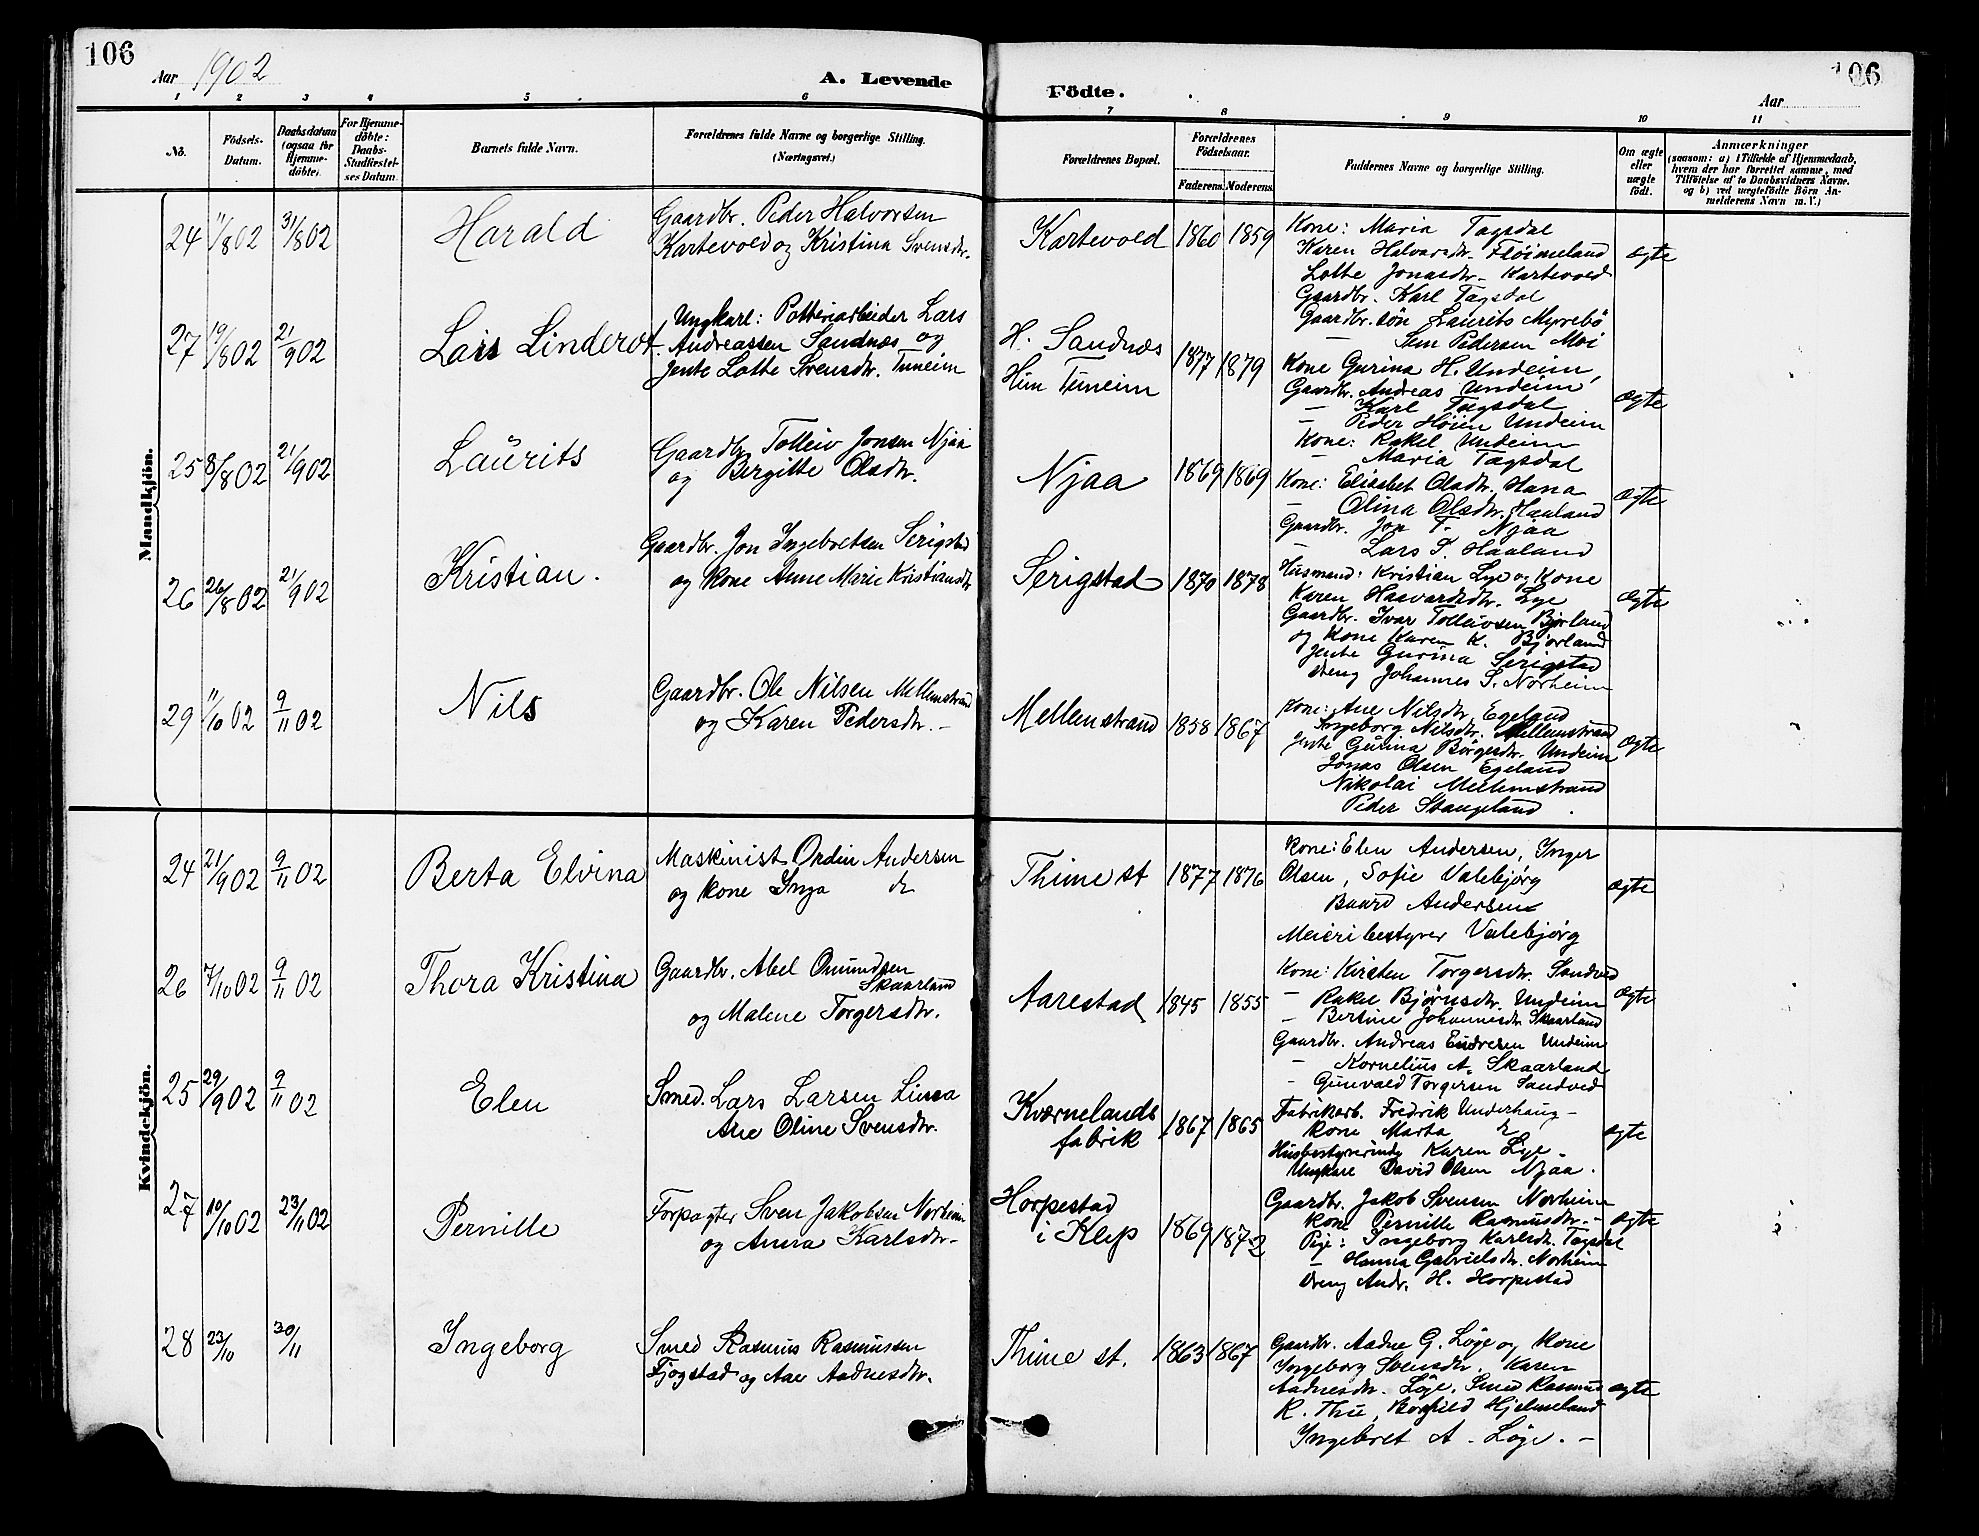 106
Aar 1902
A. Levende
Födte.
106
Aar
1 2 3 4 5 6 7 8 9 10 11
No.
Födsels-
Datum.
Daabsdatum
(ogsaa for
Hjemme-
döbte).
For Hjemme-
döbte:
Daabs-
Stadfæstel-
ses Datum.
Barnets fulde Navn.
Forældrenes fulde Navne og borgerlige Stilling.
(Næringsvei.)
Forældrenes Bopæl.
Forældrenes
Födselsaar.
Faderens. Moderens.
Faddernes Navne og borgerlige Stilling.
Om ægte
eller
uægte
födt.
Anmærkninger
(saasom: a) i Tilfælde af Hjemmedaab,
hvem der har forrettet samme, med
Tilföielse af to Daabsvidners Navne.
og b) ved uægtefödte Börn An-
melderens Navn m. V.)
Mandkjön.
24 11/8 02 31/8 02 Harald
Gaardbr. Peder Halvorsen
Kartevold og Kristina Svensdtr.
Kartevold 1860 1859
Kone: Maria Tagsdal
Karen Halvorsdtr. Fløimeland
Lotte Jonasdtr. Kartevold
Gaardbr. Karl Tagsdal
Gaardbr. søn Laurits Myrebö
Pedersen Moi
ægte
27 19/8 02 21/9 02 Lars Linderot
Ungkarl: Potteriarbeider Lars
Andreassen Sandnæs og
Jente Lotte Svensdtr. Tuneim
H. Sandnæs
Hun Tuneim
1877 1879
Kone Gurina H. Undeim,
Gaardbr. Andreas Undeim
— Karl Tagsdal
— Peder Høien Undeim
Kone: Rakel Undeim
— Maria Tagsdal
ægte
25 8/8 02 21/9 02 Laurits
Gaardbr. Tolleiv Jonsen Njaa
og Bergitte Olsdtr.
Njaa 1869 1869
Kone: Elisabet Olsdtr. Hana
— Olina Olsdtr. Haaland
Gaardbr. Jon T. Njaa
— Lars S. Haaland
ægte
26 26/8 02 21/9 02 Kristian.
Gaardbr. Jon Ingebretsen Serigstad
og kone Anne Marie Kristiansdtr
Serigstad 1870 1878
Husmand: Kristian Lye og Kone
Karen Haavardsdtr. Lye
Gaardbr. Ivar Tolleivsen Bjørland
og Kone Karen K. Bjørland
Jente Gurina Serigstad
Dreng Johannes S. Norheim
ægte
29 11/10 02 9/11 02 Nils
Gaardbr. Ole Nilsen Mellemstrand
og Karen Pedersdtr. —
Mellemstrand 1858 1867
Kone: Ane Nilsdtr Egeland
Ingeborg Nilsdtr. Mellemstrand
Jente Gurina Börgesdtr. Undeim
Jonas Olsen Egeland
Nikolai Mellemstrand
Peder Stangeland
ægte
Kvindekjön.
24 21/9 02 9/11 02 Berta Elvina
Maskinist Ordin Andersen
og kone Inga do
Thime st 1877 1876
Kone: Elen Andersen, Inger
Olsen, Sofie Valebjørg
Baard Andersen
Meieribestyrer Valebjørg
ægte
26 7/10 02 9/11 02 Thora Kristina
Gaardbr. Abel Omundsen
Skaarland
og Malene Torgersdtr.
Aarestad 1845 1855
Kone: Kirsten Torgersdtr. Sandved
— Rakel Bjørnsdtr. Undeim
— Bertine Johannesdtr Skaarland
Gaardbr. Andreas Endresen Undeim
— Kornelius A. Skaarland
— Gunvald Torgersen Sandved
ægte
25 29/9 02 9/11 02 Elen
Smed. Lars Larsen Lima
Ane Oline Svensdtr.
Kværnelands
fabrik
1867 1865
Fabrikarb. Fredrik Underhaug —
kone Marta
Husbestyrerinde Karen Lye —
Ungkarl David Olsen Njaa.
ægte
27 10/10 02 23/11 02 Pernille
Forpagter Sven Jakobsen Norheim
og Anna Karlsdtr—
Horpestad
i Klep
1869 1872
Gaardbr. Jakob Svensen Norheim
kone Pernille Rasmusdtr. —
Pige: Ingeborg Karlsdtr. Tagsdal
— Hanna Gabrielsdtr. Norheim
Dreng Andr. H. Horpestad
ægte
28 23/10 30/11 Ingeborg
Smed Rasmus Rasmussen
Fjogstad og Ane Aadnesdtr.
Thime st. 1863 1867
Gaardbr. Aadne G. Løge og Kone
Ingeborg Svensdtr. Karen
Aadnesdtr. Løge. Smed Rasmus
R. Thu, Borhild Hjelmeland
Ingebret A. Løge. —
ægte